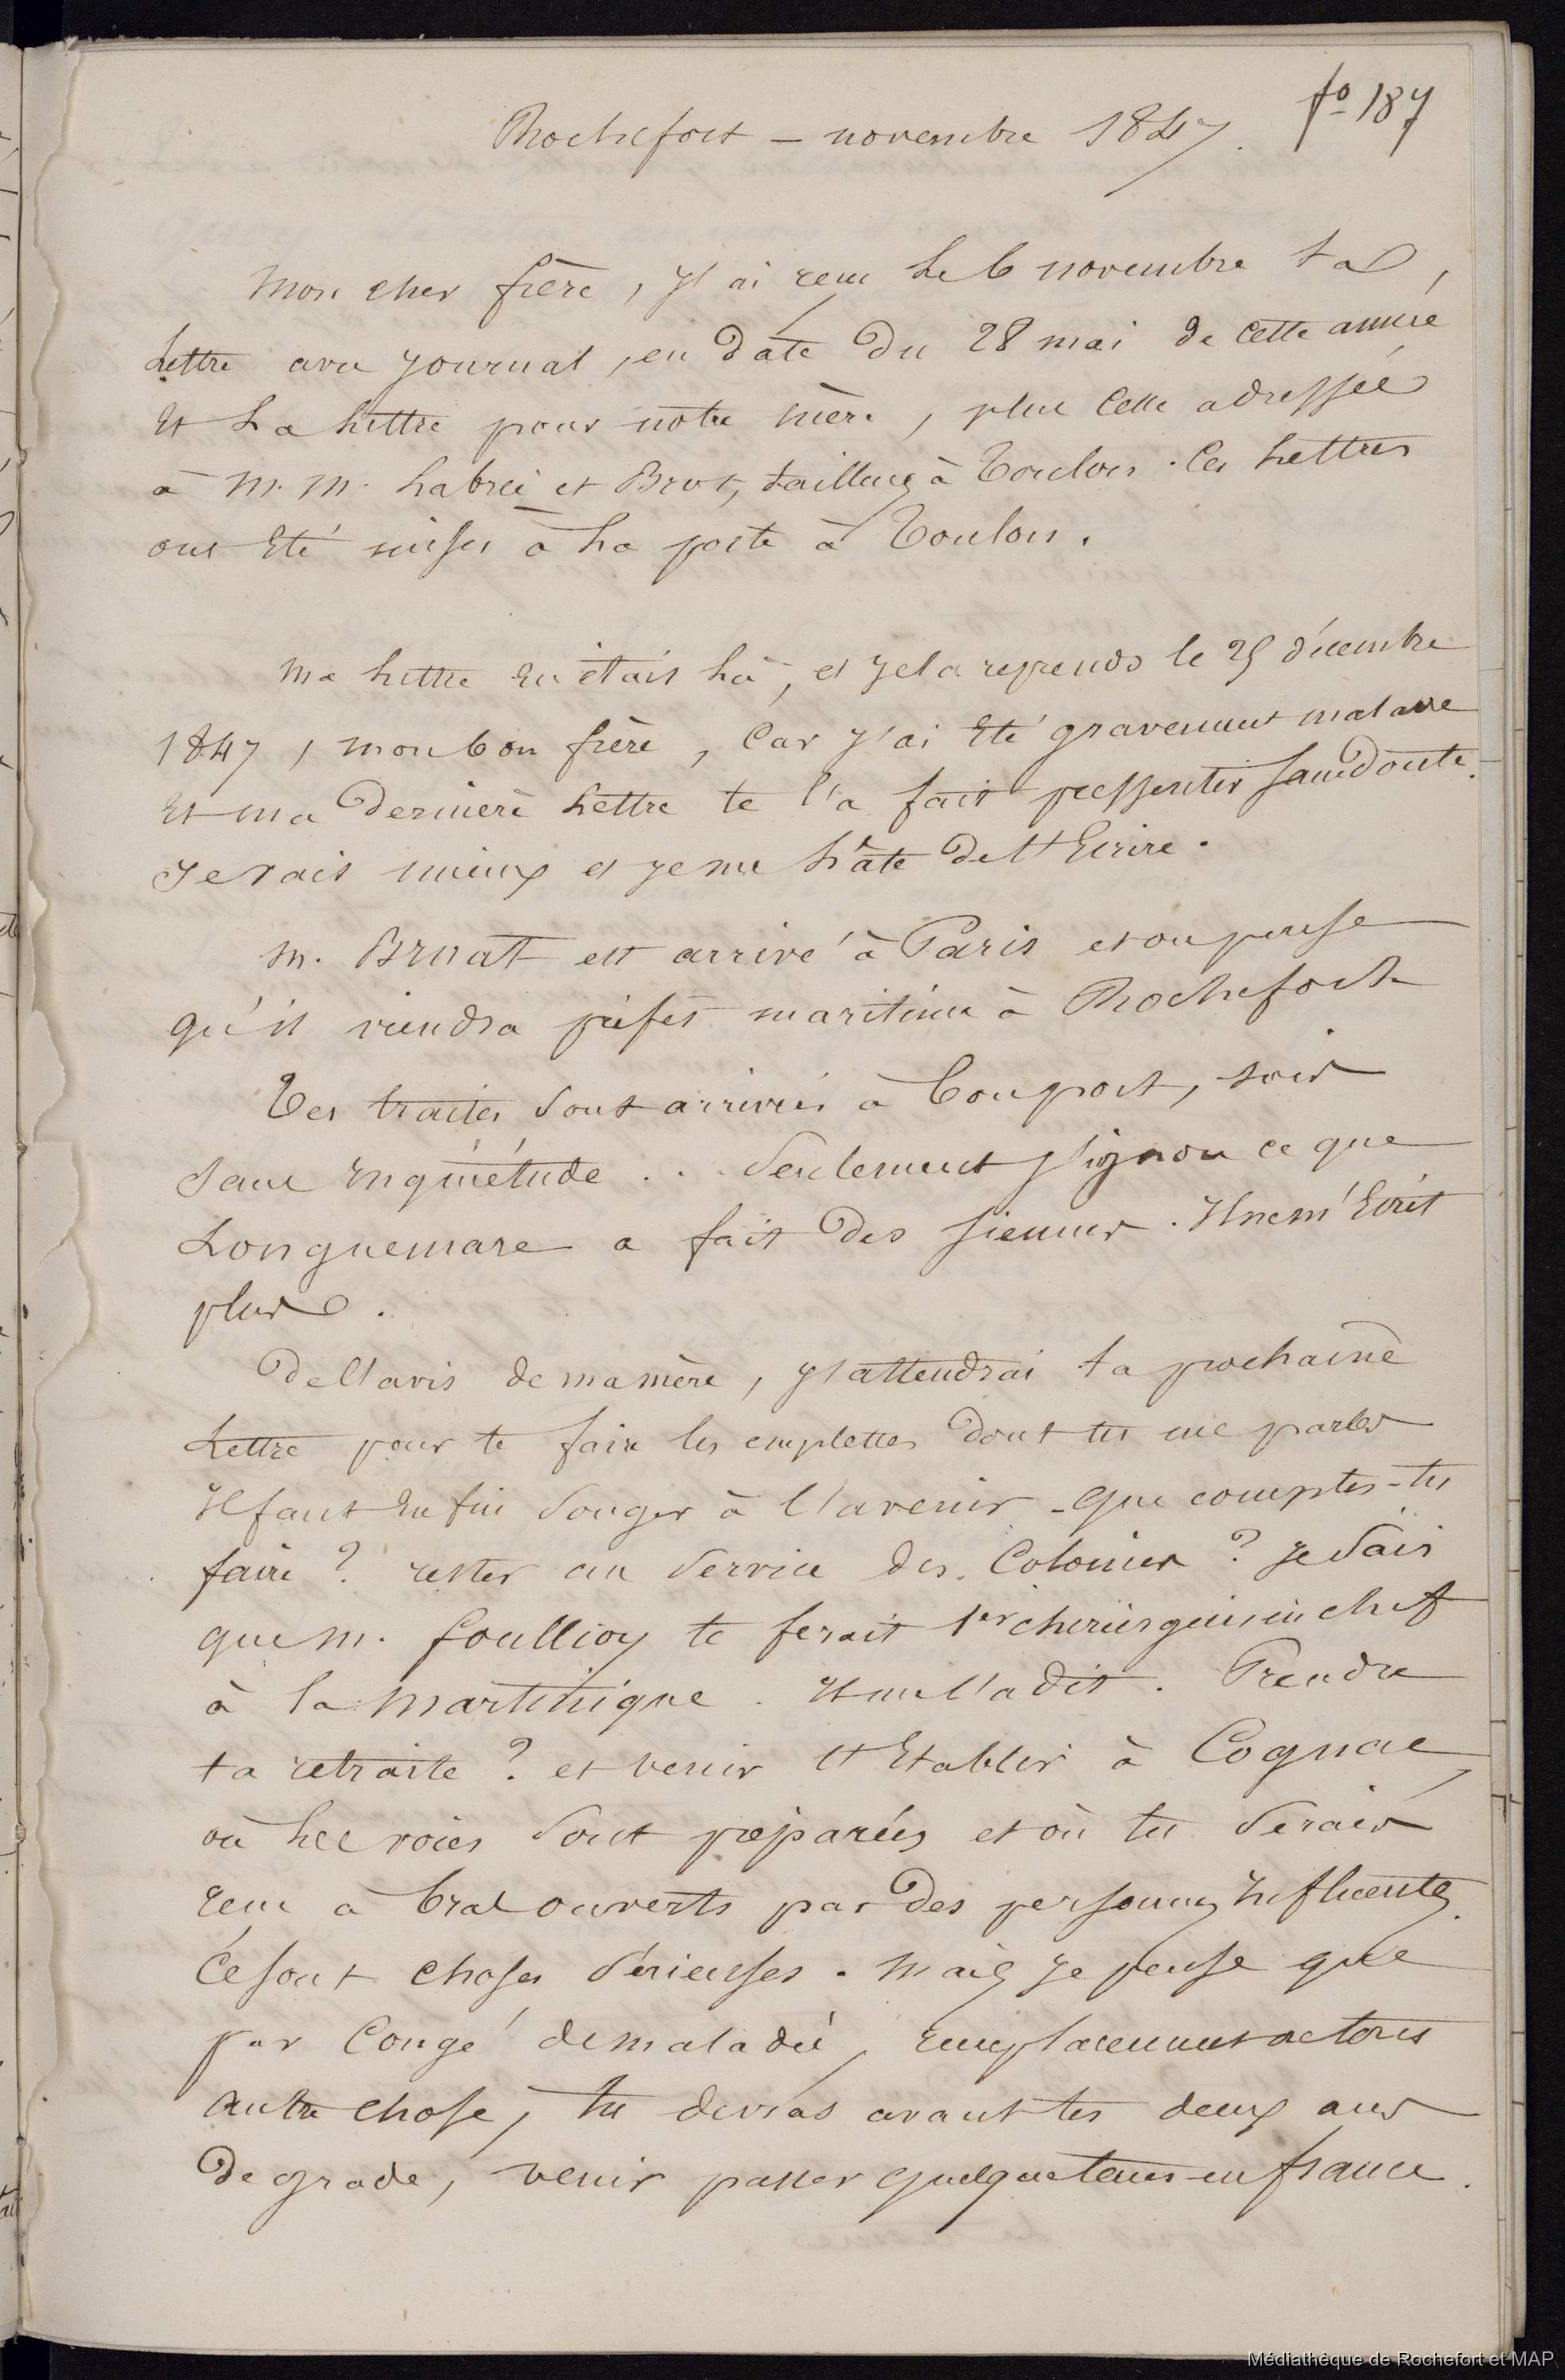 fo 187
Rochefort – novembre 1847.
Mon cher frère, j'ai reçu le 6 novembre ta
lettre avec journal, en date du 28 mai de cette année
et la lettre pour notre mère, plus celle adressée
à M. M. Labrei et Brot, tailleurs à Toulon. Ces lettres
ont été mises à la poste à Toulon.
Ma lettre en était là, et je la reprends le 25 décembre
1847, mon bon frère, car j'ai été gravement malade
et ma dernière lettre te l'a fait pressentir sans doute.
Je vais mieux et je me hâte de t'écrire.
M. Bruat est arrivé à Paris et on pense
qu'il viendra préfet maritime à Rochefort
Tes traites sont arrivées à bon port, sois
sans inquiétude . . . Seulement j'ignore ce que
Longuemare a fait des siennes. Il ne m'écrit
plus.
De l'avis de ma mère, j'attendrai ta prochaine
lettre pour te faire les emplettes dont tu me parles
Il faut enfin songer à l'avenir – que comptes-tu
faire ? rester au service des Colonies ? je sais
que M. Foullioy te ferait 1er chirurgien en chef
à la Martinique. Il me l'a dit. Prendre
ta retraite ? et venir t'établir à Cognac,
où les voies sont préparées et où tu serais
reçu à bras ouverts par des personnes influentes.
Ce sont choses sérieuses. Mais je pense que
par congé de maladie, remplacement ou toute
autre chose, tu devras avant tes deux ans
de grade, venir passer quelque tems en france.
Médiathèque de Rochefort et MAP